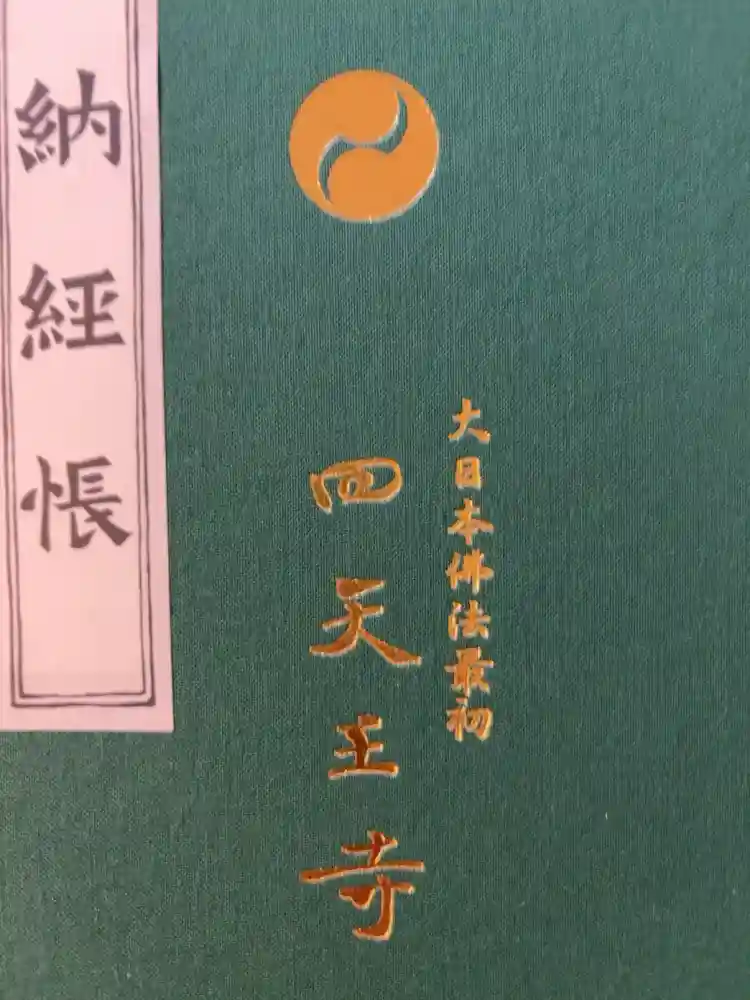 大日本佛法最初
四天王寺
納經帳